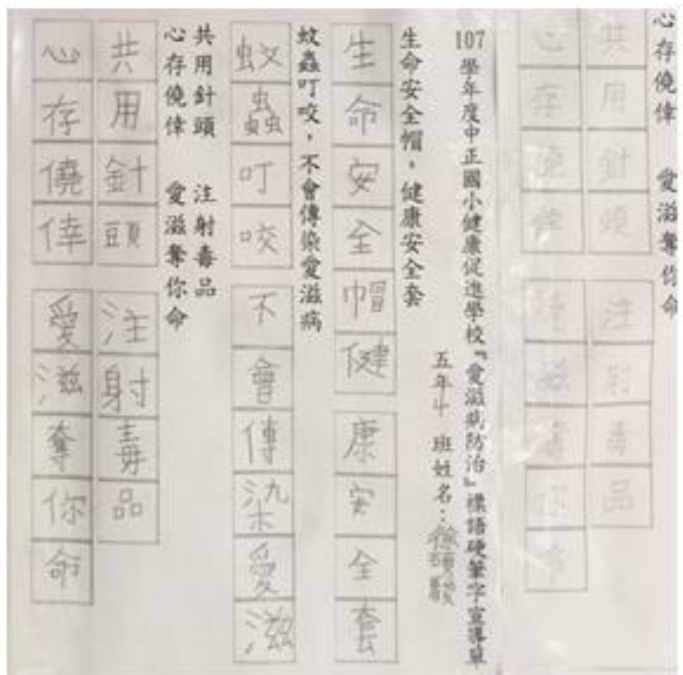 心存僥倖 愛滋奪你命
共用針頭 注射毒品
心存僥倖 愛滋奪你命
107 學年度中正國小健康促進學校『愛滋病防治』標語硬筆字宣導單
五年 班姓名：
生命安全帽，健康安全套
生命安全帽健康安全套
蚊蟲叮咬，不會傳染愛滋病
蚊蟲叮咬不會傳染愛滋
共用針頭 注射毒品
心存僥倖 愛滋奪你命
共用針頭 注射毒品
心存僥倖 愛滋奪你命